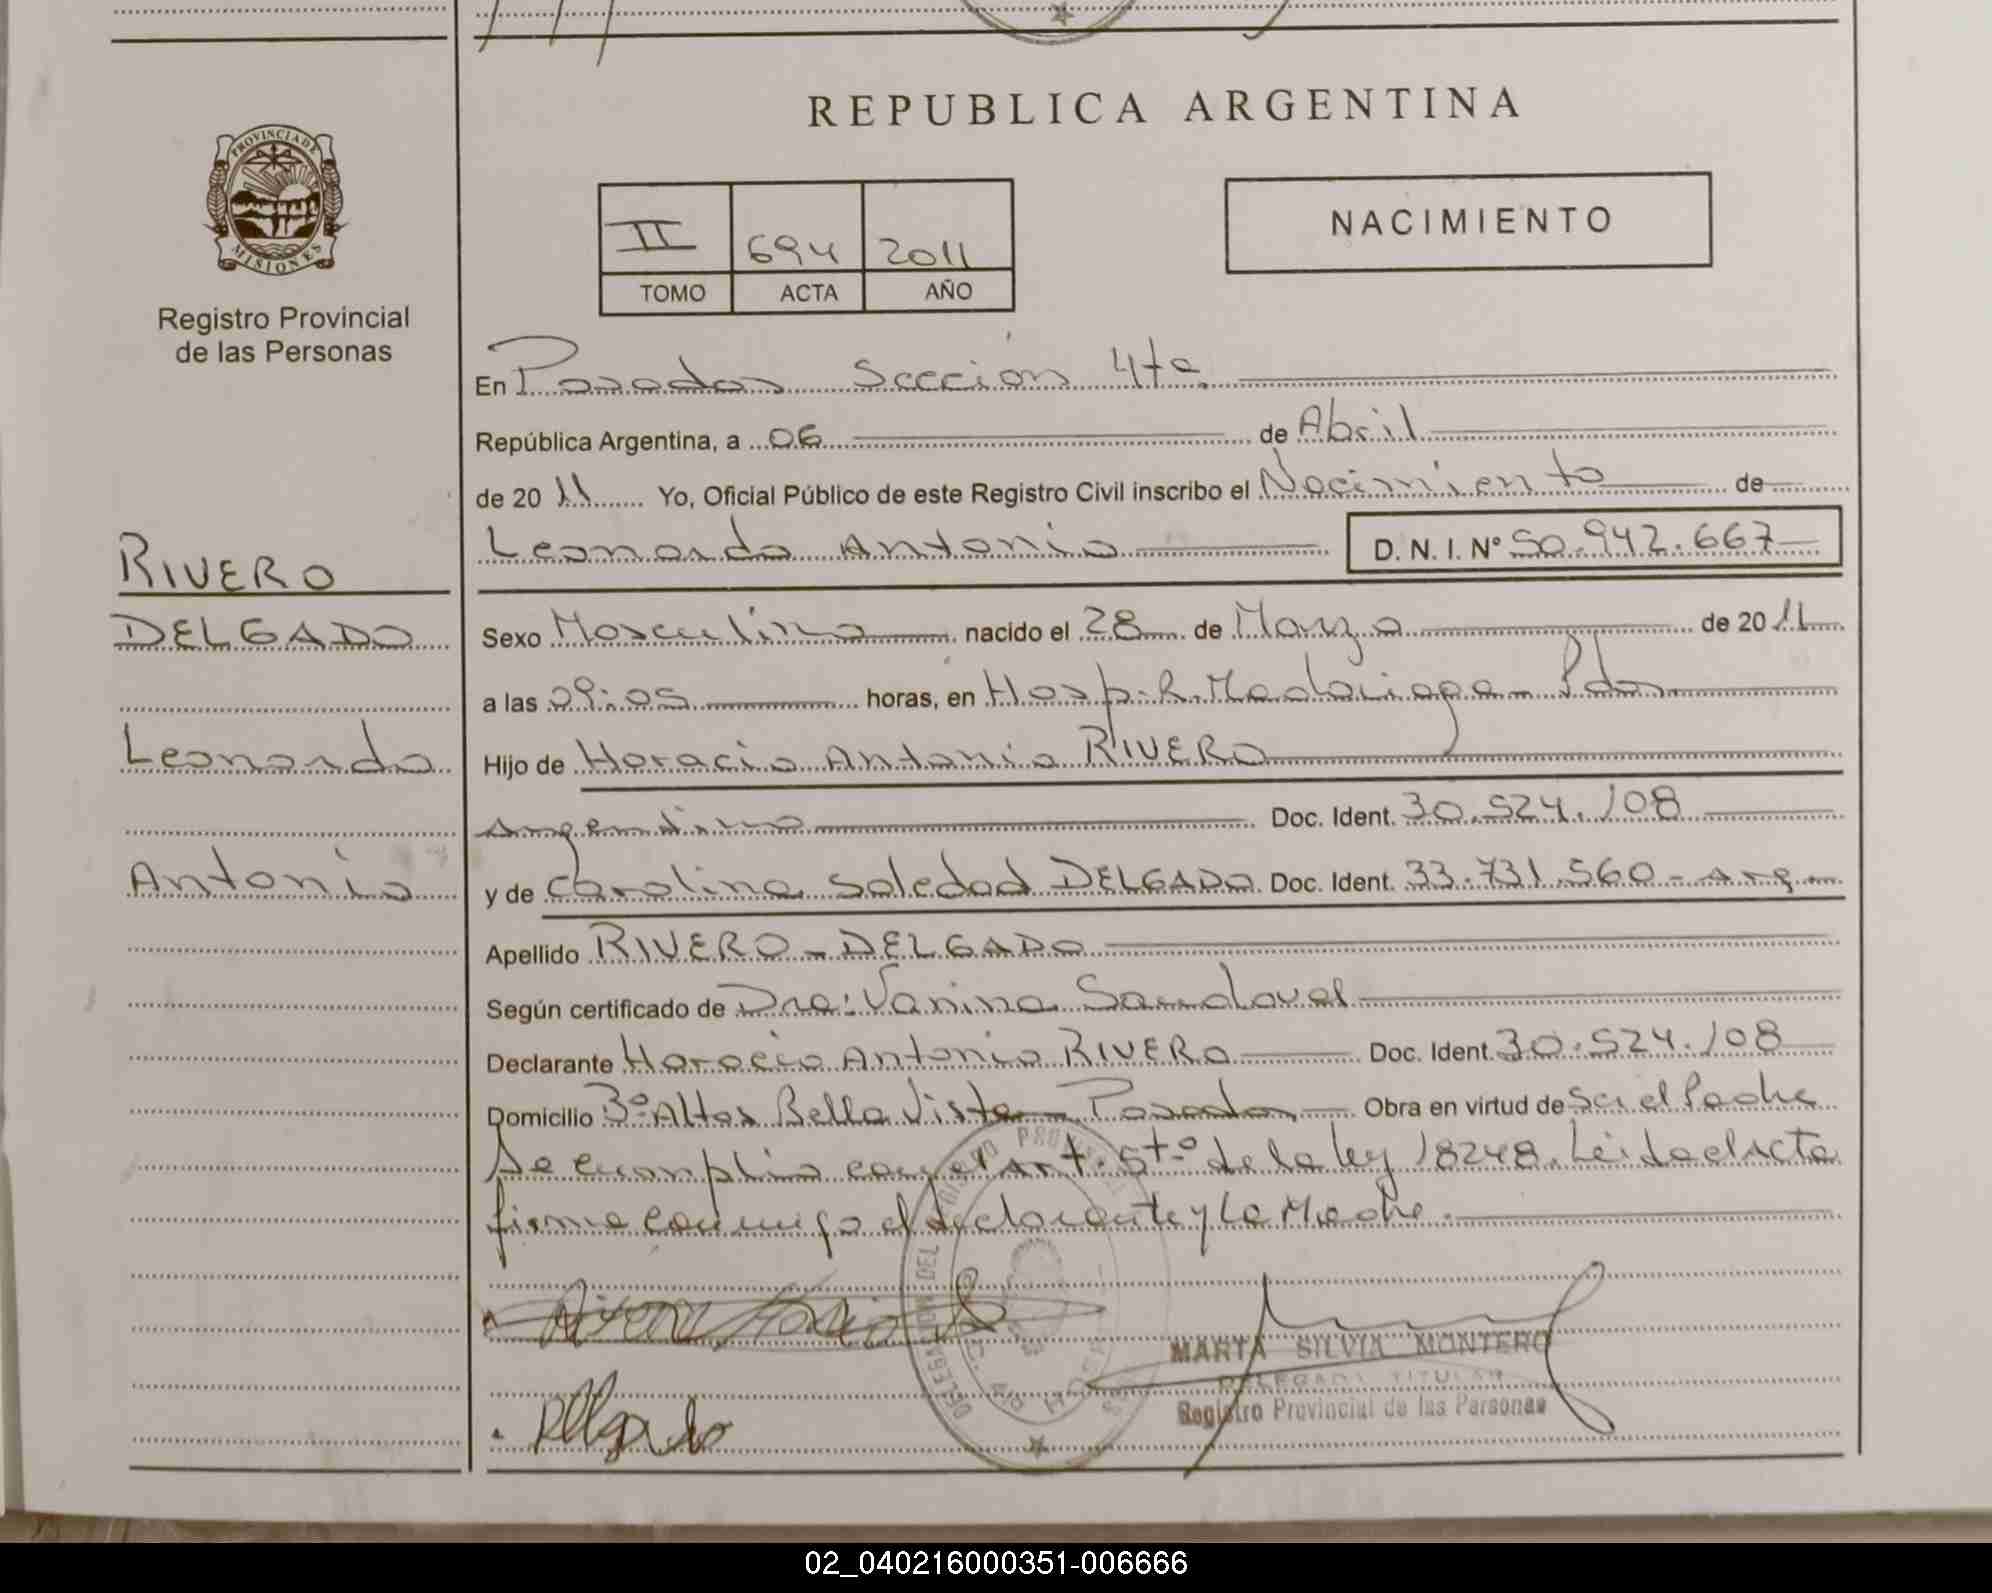 REPUBLICA ARGENTINA
PROVINCIA DE MISIONES
Registro Provincial
de las Personas
II 694 2011
TOMO ACTA AÑO
NACIMIENTO
En Posadas Sección 4ta.
República Argentina, a 06 de Abril
de 20 11 Yo, Oficial Público de este Registro Civil inscribo el Nacimiento de
Leonardo Antonio D. N. I. N° 50.942.667
RIVERO
DELGADO
Leonardo
Antonio
Sexo Masculino nacido el 28 de Marzo de 20 11
a las 09:05 horas, en Hosp. R. Madariaga - Pdas
Hijo de Horacio Antonio RIVERO
Argentino Doc. Ident. 30.524.108
y de Carolina Soledad DELGADO Doc. Ident. 33.731.560 - Arg.
Apellido RIVERO - DELGADO
Según certificado de Dra: Vanina Sandoval
Declarante Horacio Antonio RIVERO Doc. Ident. 30.524.108
Domicilio 3° Altos Bella Vista - Posadas Obra en virtud de Ser el Padre
Se cumplio con el Art. 5to de la ley 18248. Leida el Acta
firma conmigo el declarante y La Madre.
Delgado
MARTA SILVIA MONTERO
DELEGADA TITULAR
Registro Provincial de las Personas
02_040216000351-006666